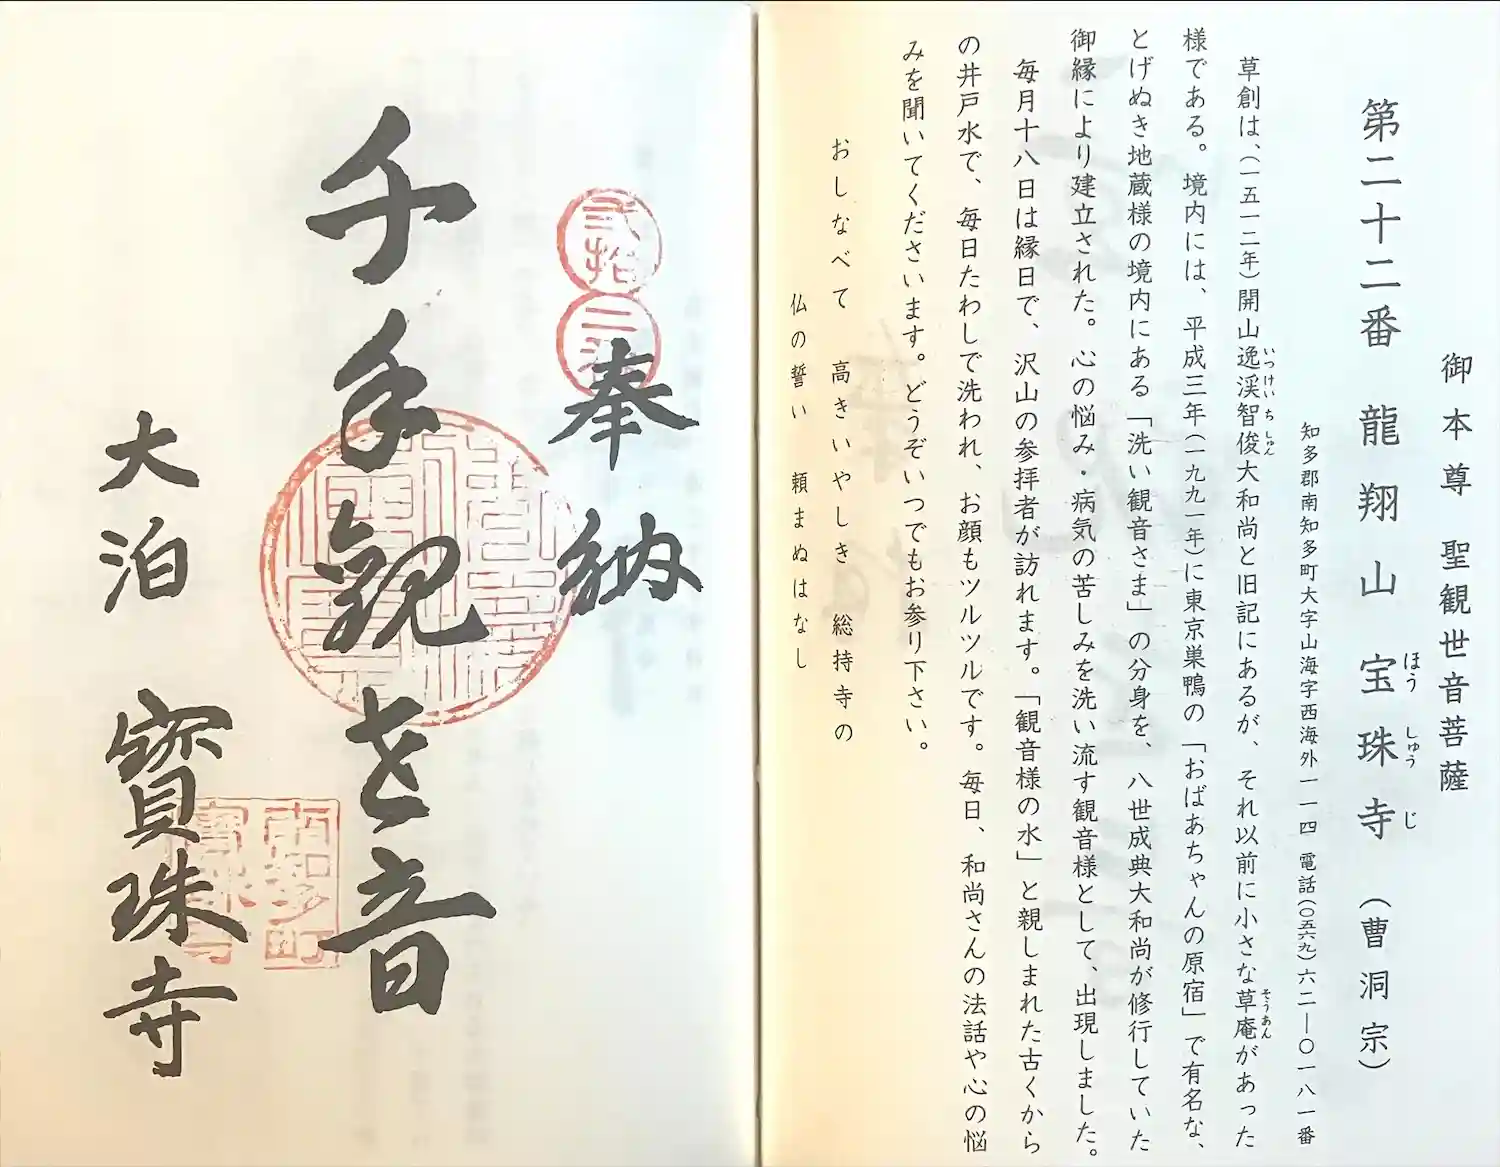 御本尊 聖観世音菩薩
第二十二番 龍翔山 宝珠寺 (曹洞宗)
ほうしゅうじ
知多郡南知多町大字山海字西海外一一四 電話(〇五六九)六二―〇一八一番
草創は、(一五一二年)開山逸渓智俊大和尚と旧記にあるが、それ以前に小さな草庵があった
いつけいちしゅん
そうあん
様である。境内には、平成三年(一九九一年)に東京巣鴨の「おばあちゃんの原宿」で有名な、
とげぬき地蔵様の境内にある「洗い観音さま」の分身を、八世成典大和尚が修行していた
御縁により建立された。心の悩み・病気の苦しみを洗い流す観音様として、出現しました。
毎月十八日は縁日で、沢山の参拝者が訪れます。「観音様の水」と親しまれた古くから
の井戸水で、毎日たわしで洗われ、お顔もツルツルです。毎日、和尚さんの法話や心の悩
みを聞いてくださいます。どうぞいつでもお参り下さい。
おしなべて 高きいやしき 総持寺の
仏の誓い 頼まぬはなし
奉納
弐拾
二
千手観世音
大泊 寳珠寺
南知多町
寳珠寺